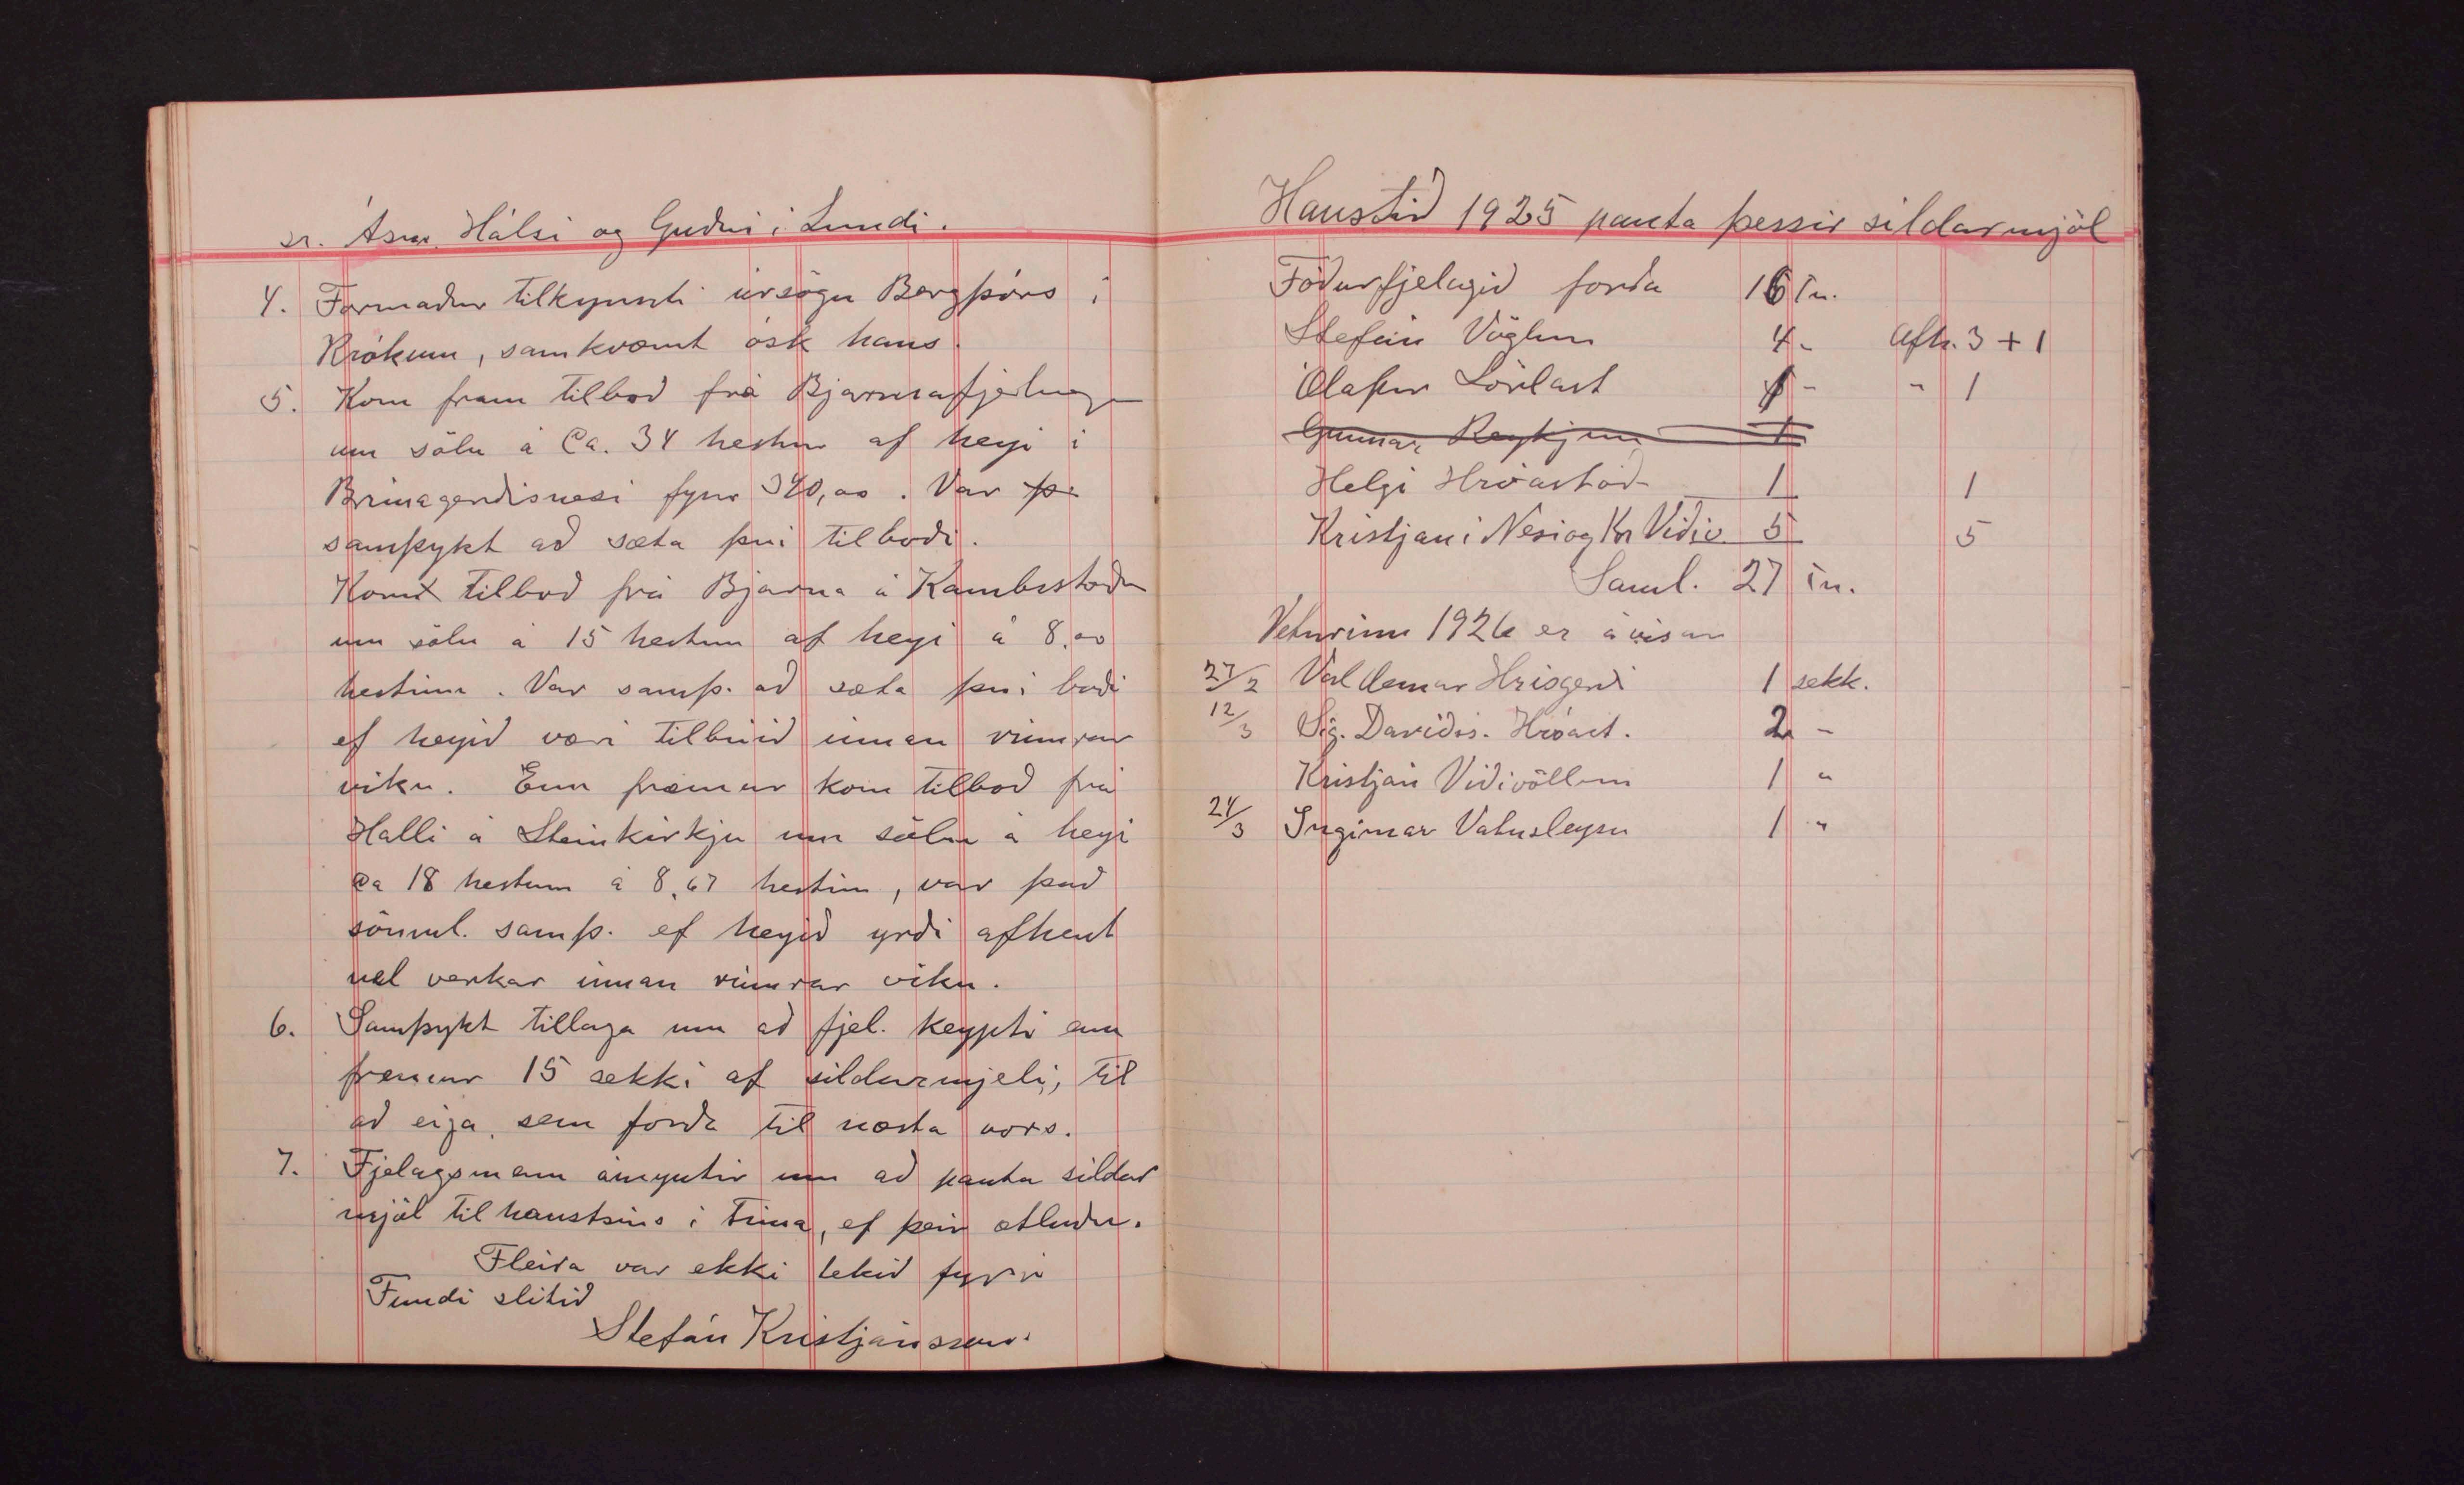 sr. Ásm. Hálsi og Guðni í Lundi.
4. Formaður tilkynnti úrsögn Bergþórs í
Krókum, samkvæmt ósk hans.
5. Kom fram tilboð frá Bjarmafjelag
um sölu á Ca. 34 hestum af heyi í
Brinagerdisnesi fyrir 340,00. Var þe
samþykt að sæta því tilboði.
Komx tilboð frá Bjarna á Kambsstöðum
um sölu á 15 hestum af heyi á 8.00
hestinn. Var samþ. að sæta því boði
ef heyið væri tilbúið innan rúmrar
viku. Enn fremur kom tilboð frá
Halli á Steinkirkju um sölu á heyi
ca 18 hestum á 8,67 hestinn, var það
sömul. samþ. ef heyið yrði afhent
vel verkað innan rúmrar viku.
6. Samþykt tillaga um að fjel. keypti enn
fremur 15 sekki af síldarmjeli, til
að eiga sem forða til næsta vors.
7. Fjelagsmenn ámyntir um að panta síldar
mjöl til haustsins í tíma, ef þeir ætluðu.
Fleira var ekki tekið fyrir
Fundi slitið
Stefán Kristjánsson.
Haustið 1925 panta þessir síldarmjöl
Fóðurfjelagið forða 16 tn.
Stefán Vöglum 4 - Afh. 3 + 1
Ólafur Sörlast 1 - " 1
Gunnar Reykjum 1
Helgi Hróarstöð 1 1
Kristján í Nesi og Kr Víðiv 5 5
Saml. 27 tn.
Veturinn 1926 er ávísað
27/2 Valdemar Hrísgerði 1 sekk.
12/3 Sig. Davíðs. Hróast. 2 -
Kristján Víðivöllum 1 "
24/3 Ingimar Vatnsleysu 1 "